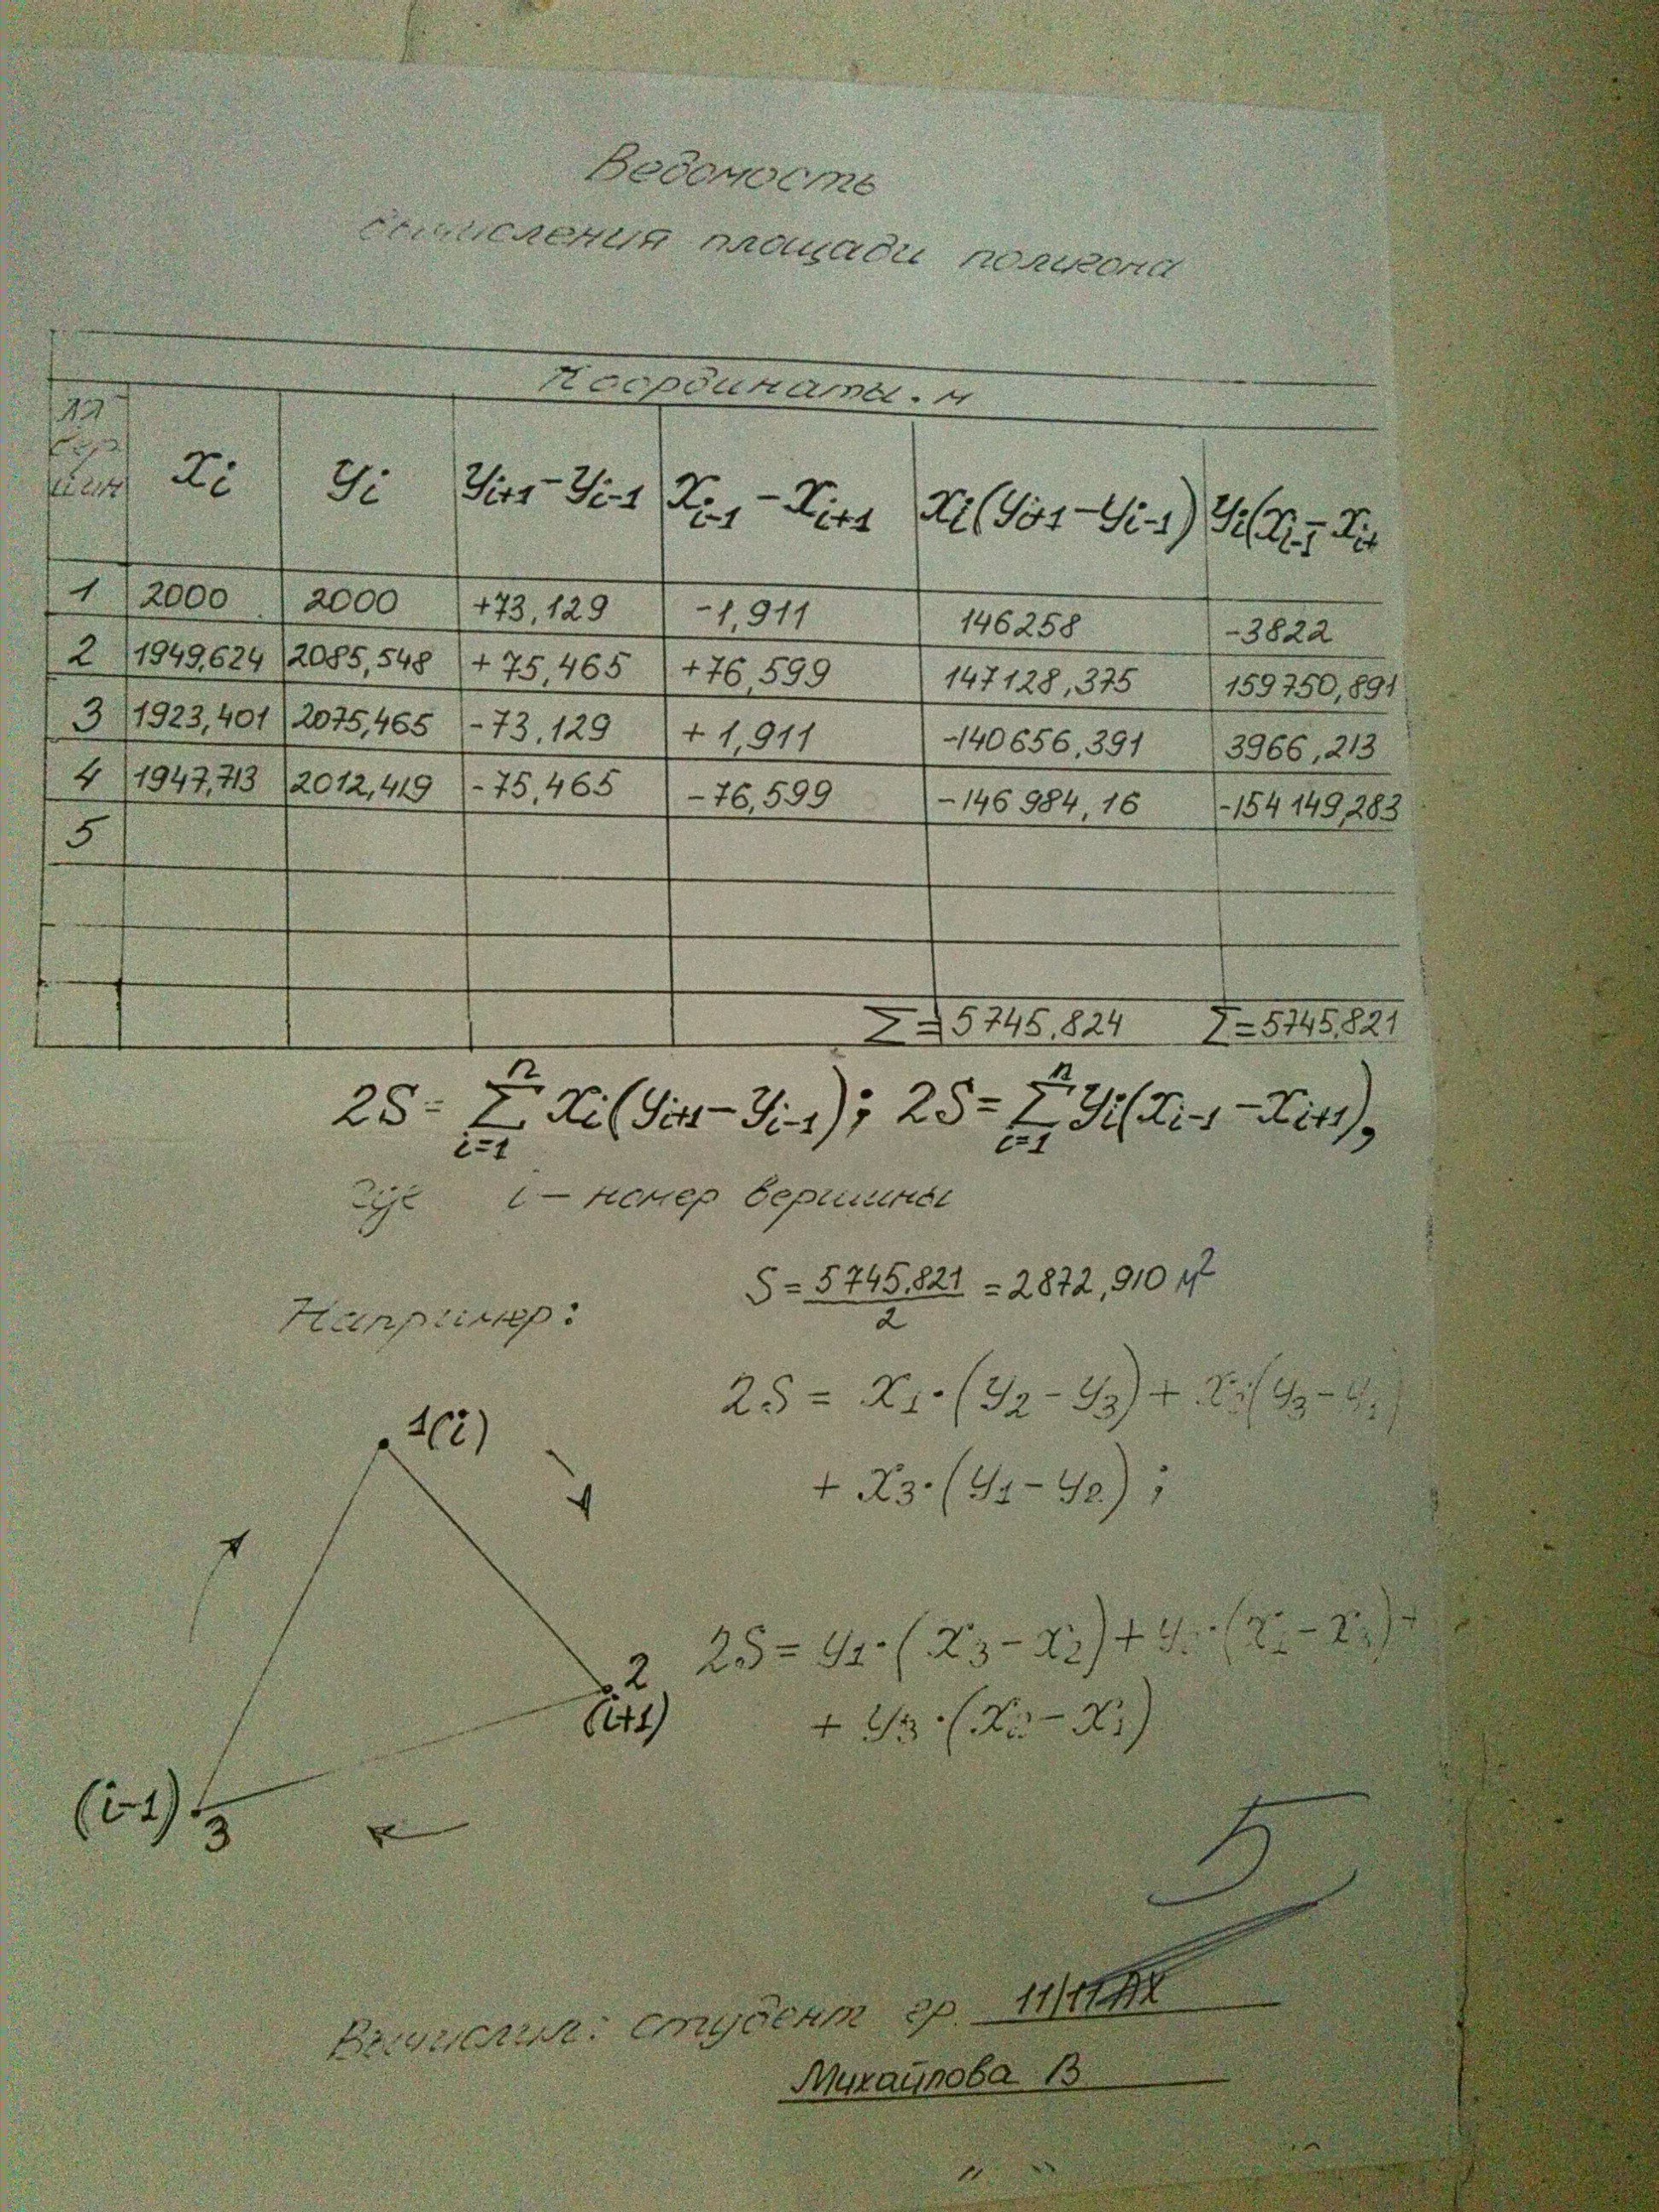 Ведомость
вычисления площади полигона
Координаты. м
№№ вершин xi yi yi+1 - yi-1 xi-1 - xi+1 xi(yi+1 - yi-1) yi(xi-1 - xi+
1 2000 2000 +73,129 -1,911 146258 -3822
2 1949,624 2085,548 +75,465 +76,599 147128,375 159750,891
3 1923,401 2075,465 -73,129 +1,911 -140656,391 3966,213
4 1947,713 2012,419 -75,465 -76,599 -146984,16 -154149,283
5
Σ= 5745,824 Σ=5745,821
2S = Σ i=1 n xi(yi+1 - yi-1); 2S = Σ i=1 n yi(xi-1 - xi+1),
где i - номер вершины
S = 5745,821 / 2 = 2872,910 м²
Например:
2S = x1·(y2 - y3) + x2(y3 - y1)
+ x3·(y1 - y2);
1(i)
2S = y1·(x3 - x2) + y2·(x1 - x3) +
2
(i+1)
+ y3·(x2 - x1)
(i-1)
3
5
Вычислил: студент гр. 11/11АХ
Михайлова В
" "